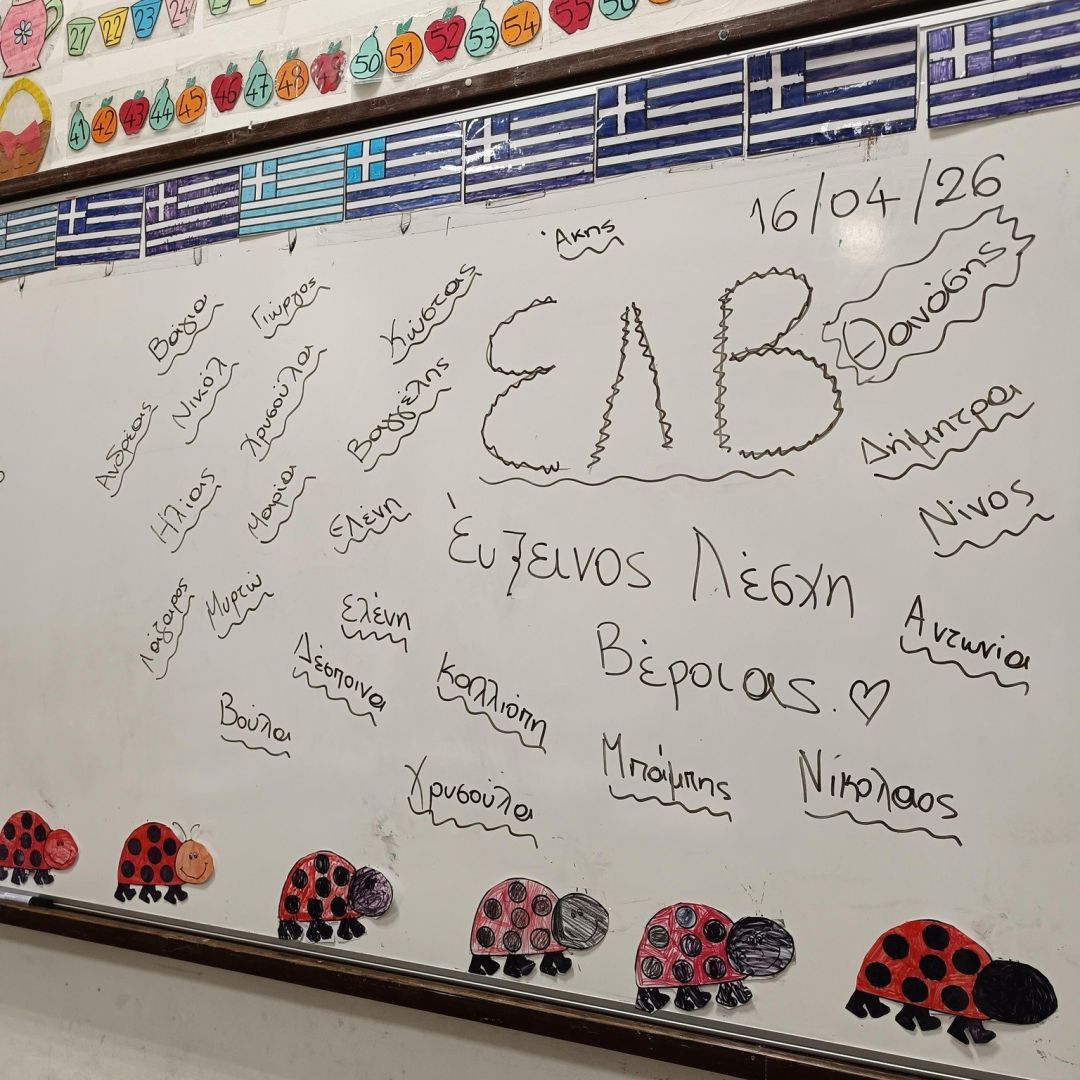 21 22 23 24
41 42 43 44 45 46 47 48 49 50 51 52 53 54 55 56
16/04/26
Άκης
ΕΛΒ
Θανάσης
Βάγια
Γιώργος
Κώστας
Ανδρέας
Νικόλ
Χρυσούλα
Βαγγέλης
Δήμητρα
Ηλίας
Μαρία
Ελένη
Νίνος
Εύξεινος Λέσχη
Βέροιας. ♡
Λάζαρος
Μυρτώ
Ελένη
Αντωνία
Δέσποινα
Καλλιόπη
Βούλα
Χρυσούλα
Μπάμπης
Νίκολαος